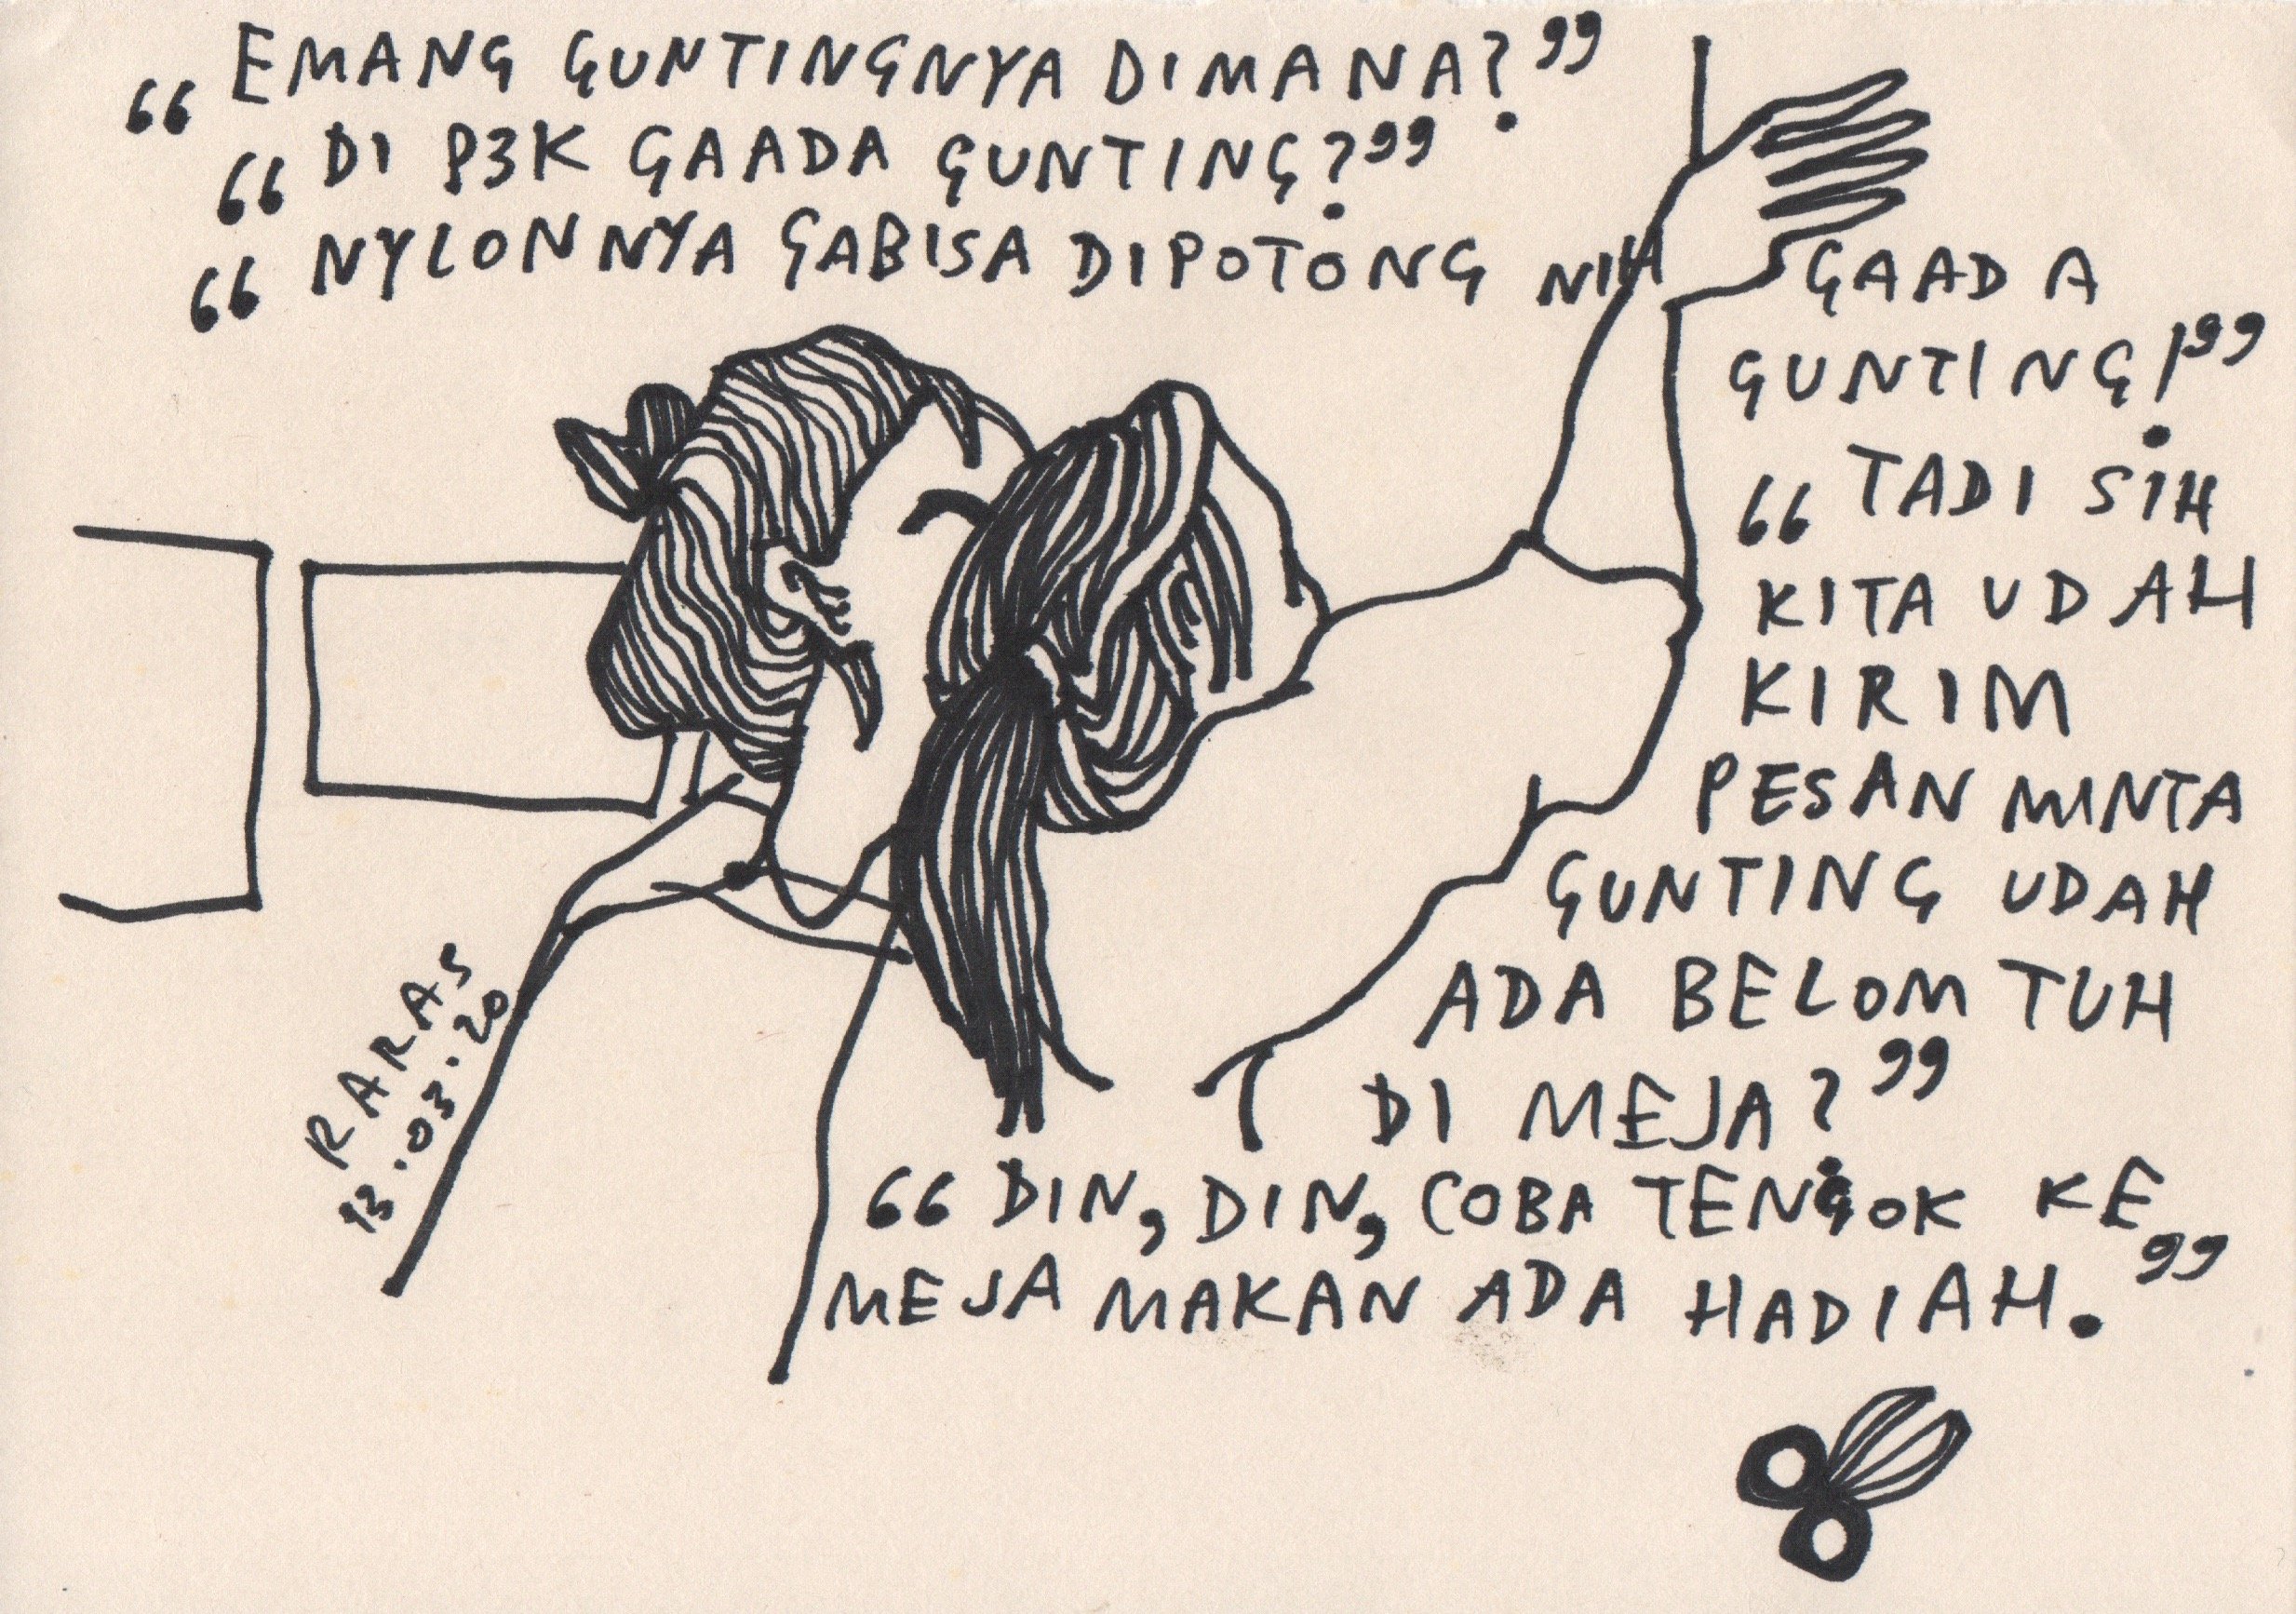 “EMANG GUNTINGNYA DIMANA?”
“DI P3K GAADA GUNTING?”
“NYLONNYA GABISA DIPOTONG NIH GAADA
GUNTING!”
“TADI SIH
KITA UDAH
KIRIM
PESAN MINTA
GUNTING UDAH
ADA BELOM TUH
DI MEJA?”
“DIN, DIN, COBA TENGOK KE
MEJA MAKAN ADA HADIAH.”
RARAS
13.03.20